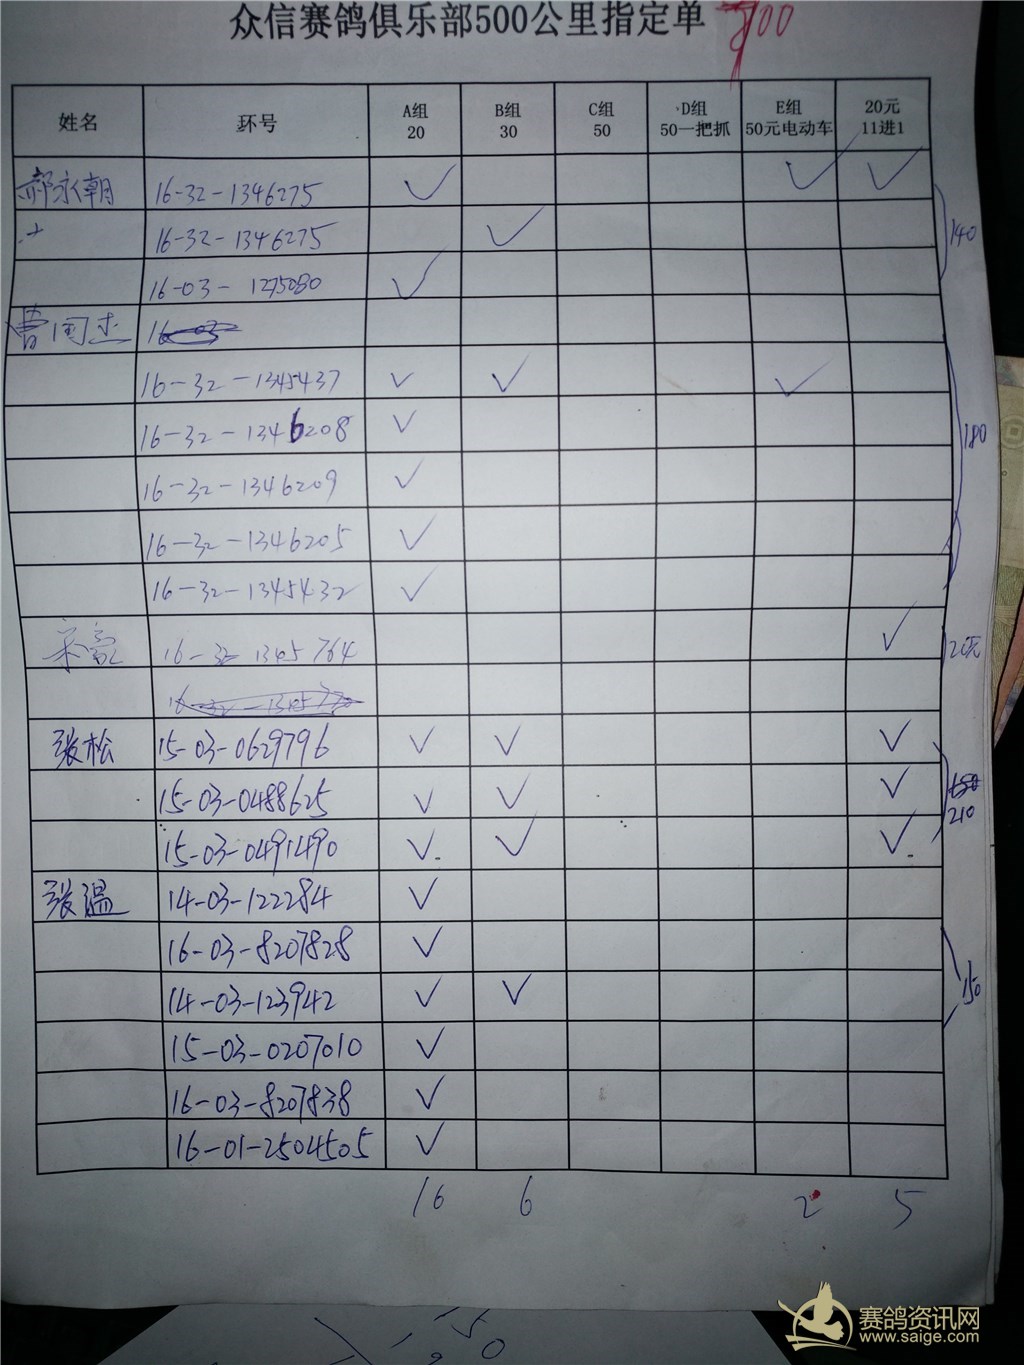 众信赛鸽俱乐部500公里指定单 700
姓名 环号 A组 20 B组 30 C组 50 D组 50一把抓 E组 50元电动车 20元 11进1
郝永朝 16-32-1346275 ✓ ✓ ✓
16-32-1346275 ✓ 140
16-03-1275080 ✓
曹国杰
16-32-1345437 ✓ ✓ ✓
16-32-1346208 ✓ 180
16-32-1346209 ✓
16-32-1346205 ✓
16-32-1345432 ✓
16-32-1345764 ✓ 20元
张松 15-03-0629796 ✓ ✓ ✓
15-03-0488625 ✓ ✓ ✓ 210
15-03-0491490 ✓ ✓ ✓
张温 14-03-122284 ✓
16-03-8207828 ✓
14-03-123942 ✓ ✓ 150
15-03-0207010 ✓
16-03-8207838 ✓
16-01-2504505 ✓
16 6 2 5
赛鸽资讯网
www.saige.com